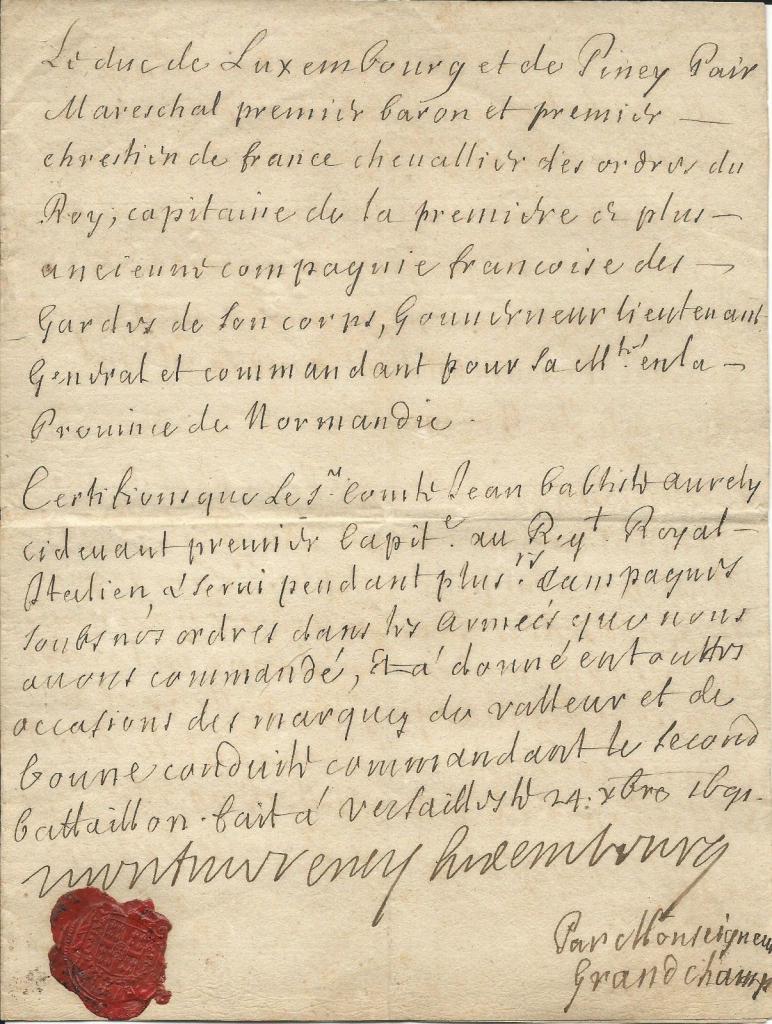 Le duc de Luxembourg et de Piney Pair
Mareschal premier baron et premier —
chrestien de france chevallier des ordres du
Roy, capitaine de la première & plus —
ancienne compagnie francoise des —
Gardes de son corps, Gouverneur lieutenant
General et commandant pour sa M.té en la —
Prouince de Normandie .
Certifions que le S.r Comte Jean baptiste aurely
cideuant premier Capit.e au Reg.t Royal —
Italien, a serui pendant plus.rs Campagnes
soubs nos ordres dans les armeés que nous
auons commandé, Et a' donné en touttes
occasions des marques de valleur et de
bonne conduite commandant le second
battaillon. fait a' versailles le 24: xbre 1691.
montmorency luxembourg
Par Monseigneur
Grandchamp